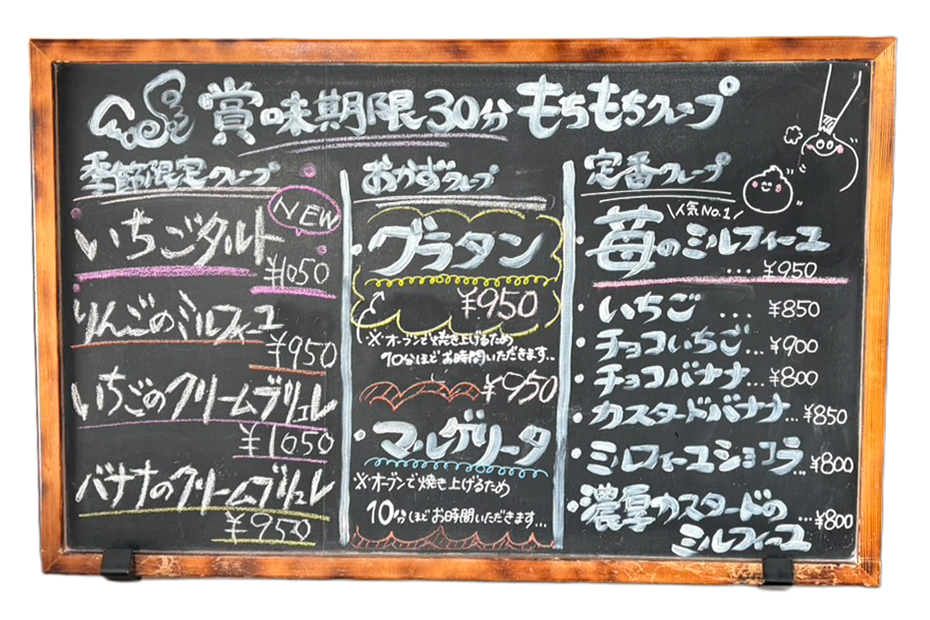 賞味期限30分 もちもちクレープ
季節限定クレープ
NEW
いちごタルト
¥1050
りんごのミルフィーユ
¥950
いちごのクリームブリュレ
¥1050
バナナのクリームブリュレ
¥950
おかずクレープ
・グラタン
¥950
※オーブンで焼き上げるため
10分ほどお時間いただきます...
¥950
・マルゲリータ
※オーブンで焼き上げるため
10分ほどお時間いただきます...
定番クレープ
\人気No.1/
・苺のミルフィーユ
... ¥950
・いちご ... ¥850
・チョコいちご... ¥900
・チョコバナナ... ¥800
・カスタードバナナ... ¥850
・ミルフィーユショコラ... ¥800
・濃厚カスタードの
ミルフィーユ ...¥800